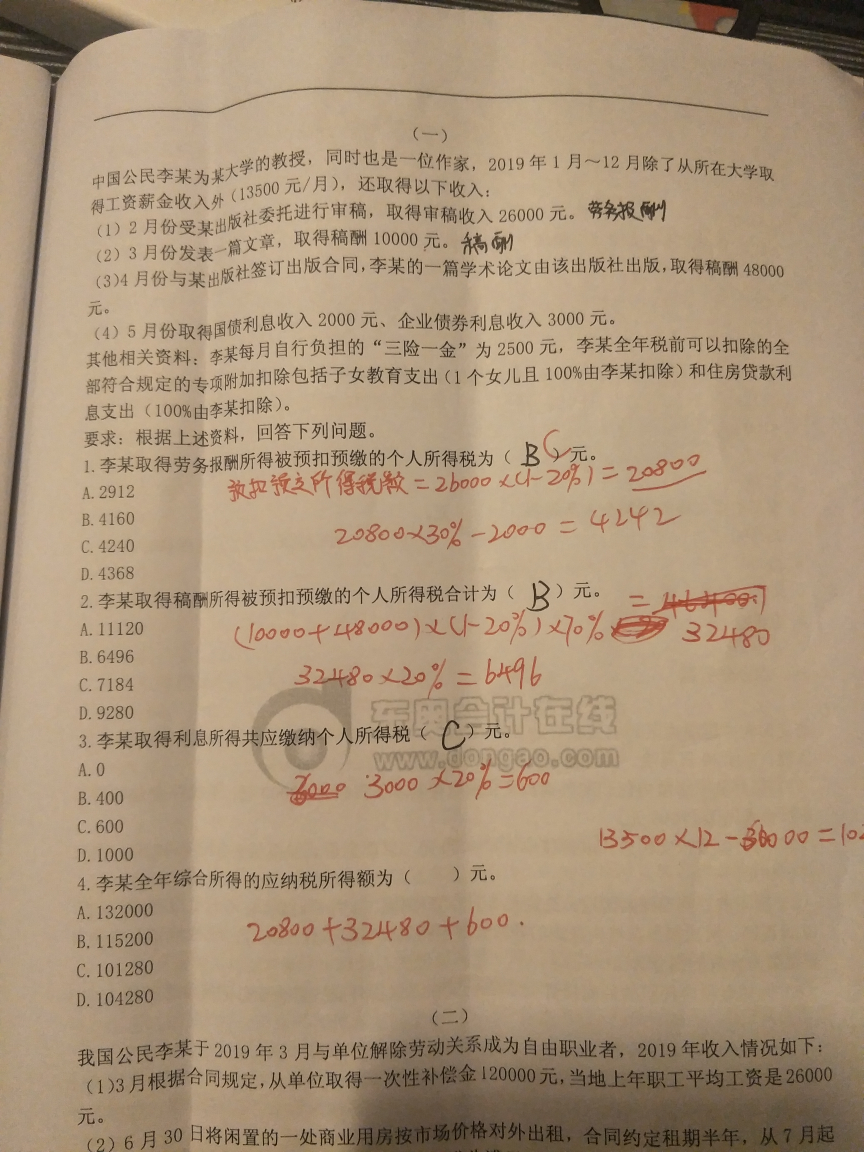 (一)
中国公民李某为某大学的教授，同时也是一位作家，2019 年 1 月～12 月除了从所在大学取
得工资薪金收入外（13500 元/月），还取得以下收入：
（1）2 月份受某出版社委托进行审稿，取得审稿收入 26000 元。劳务报酬
（2）3 月份发表一篇文章，取得稿酬 10000 元。稿酬
（3）4 月份与某出版社签订出版合同，李某的一篇学术论文由该出版社出版，取得稿酬 48000
元。
（4）5 月份取得国债利息收入 2000 元、企业债券利息收入 3000 元。
其他相关资料：李某每月自行负担的“三险一金”为 2500 元，李某全年税前可以扣除的全
部符合规定的专项附加扣除包括子女教育支出（1 个女儿且 100%由李某扣除）和住房贷款利
息支出（100%由李某扣除）。
要求：根据上述资料，回答下列问题。
1.李某取得劳务报酬所得被预扣预缴的个人所得税为（ B C ）元。
A.2912
预扣预交所得税款=26000×(1-20%)=20800
B.4160
20800×30%-2000=4242
C.4240
D.4368
2.李某取得稿酬所得被预扣预缴的个人所得税合计为（ B ）元。
A.11120
(10000+48000)×(1-20%)×70% = 32480
B.6496
32480×20%=6496
C.7184
D.9280
东奥会计在线
www.dongao.com
3.李某取得利息所得共应缴纳个人所得税（ C ）元。
A.0
3000×20%=600
B.400
C.600
13500×12-60000=102
D.1000
4.李某全年综合所得的应纳税所得额为（ ）元。
A.132000
20800+32480+600.
B.115200
C.101280
D.104280
(二)
我国公民李某于 2019 年 3 月与单位解除劳动关系成为自由职业者，2019 年收入情况如下：
（1）3 月根据合同规定，从单位取得一次性补偿金 120000 元，当地上年职工平均工资是 26000
元。
（2）6 月 30 日将闲置的一处商业用房按市场价格对外出租，合同约定租期半年，从 7 月起